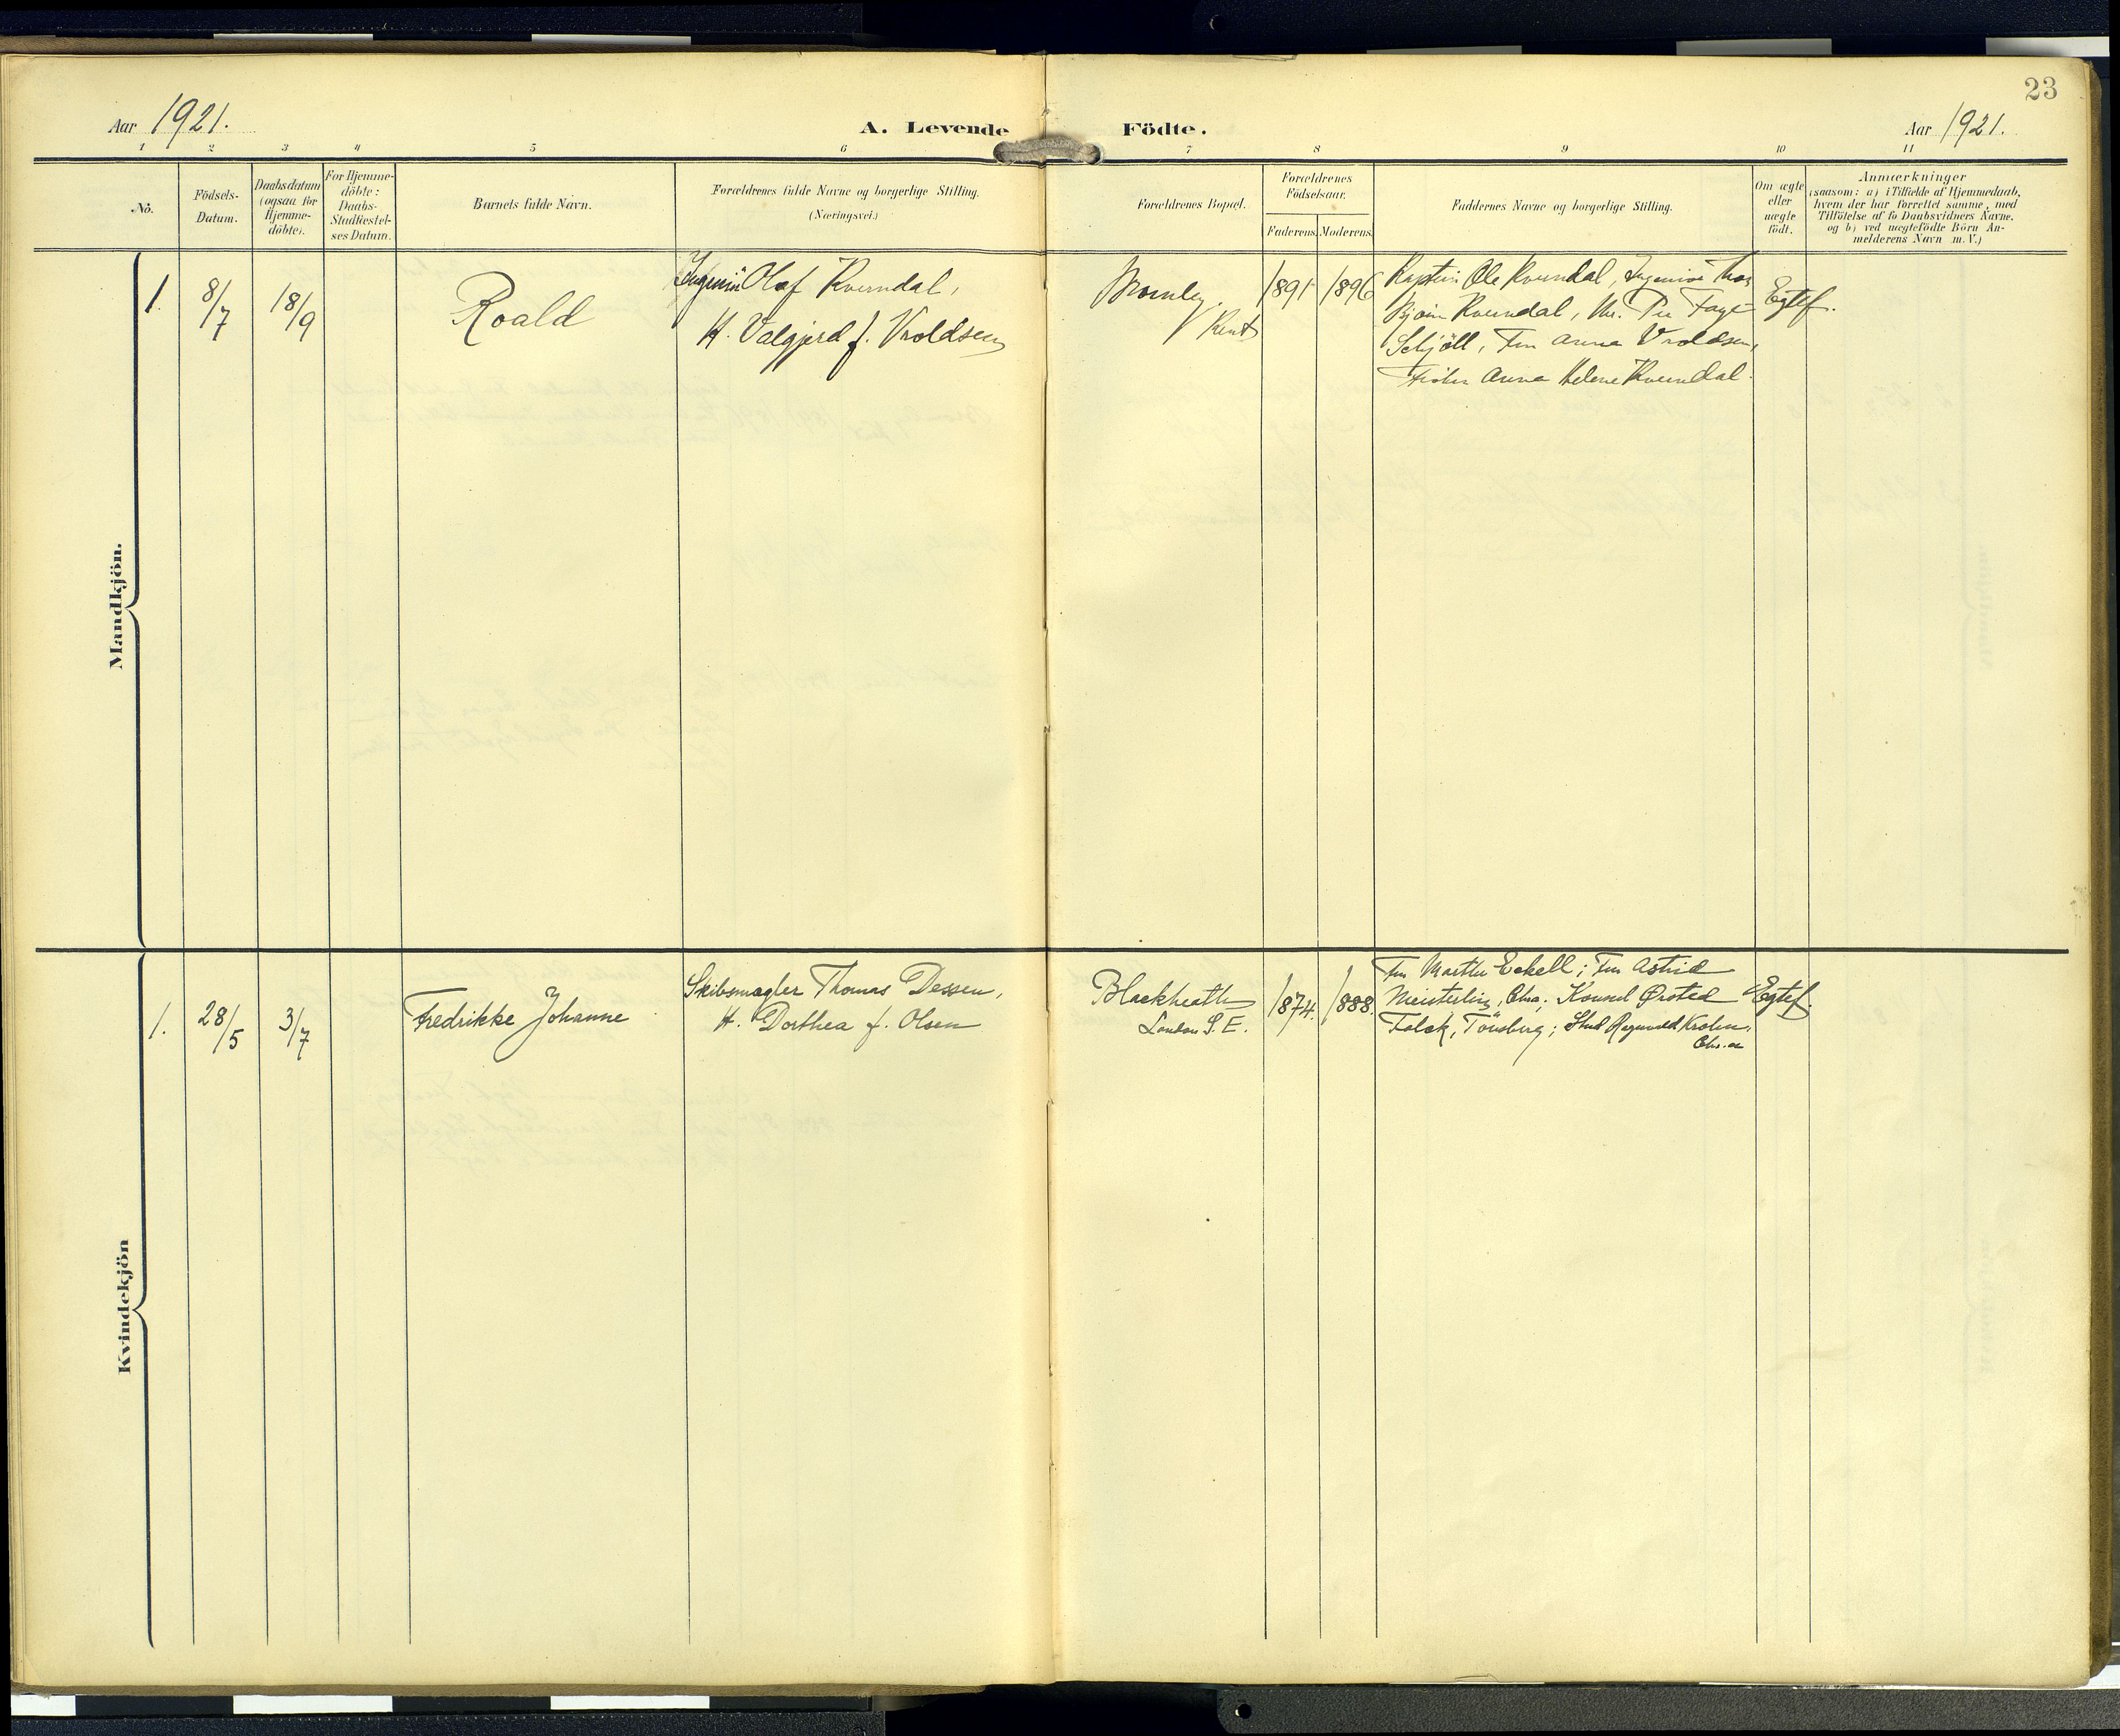 23
Aar 1921.
A. Levende Födte.
Aar 1921.
1 2 3 4 5 6 7 8 9 10 11
No.
Födsels-
Datum.
Daabsdatum
(ogsaa for
Hjemme-
döbte).
For Hjemme-
döbte:
Daabs-
Stadfæstel-
ses Datum.
Barnets fulde Navn.
Forældrenes fulde Navne og borgerlige Stilling.
(Næringsvei.)
Forældrenes Bopæl.
Forældrenes
Födselsaar.
Faderens. Moderens.
Faddernes Navne og borgerlige Stilling.
Om ægte
eller
uægte
födt.
Anmærkninger
(saasom: a) i Tilfælde af Hjemmedaab,
hvem der har forrettet samme, med
Tilföielse af to Daabsvidners Navne.
og b) ved uægtefödte Börn An-
melderens Navn m. V.)
Mandkjön.
1.
8/7
18/9
Roald
Ingeniör Olaf Kverndal,
H. Valgjerd f. Vroldsen
Bromley.
Kent
1891
1896
Kaptein Ole Kverndal, Ingeniör Thor
Bjørn Kverndal, Hr. Per Faye
Schjöll, Fru Anna Vroldsen,
Fröken Anna Helene Kverndal.
Egtef.
Kvindekjön
1.
28/5
3/7
Fredrikke Johanne
Skibsmægler Thomas Dessen,
H. Dorthea f. Olsen
Blackheath
London S.E.
1874.
1888.
Fru Marthe Eckell; Fru Astrid
Meisterlin, Chra; Konsul Ørsted
Falck, Tönsberg; Stud Ragnvald Krohn,
Chr.a
Egtef.